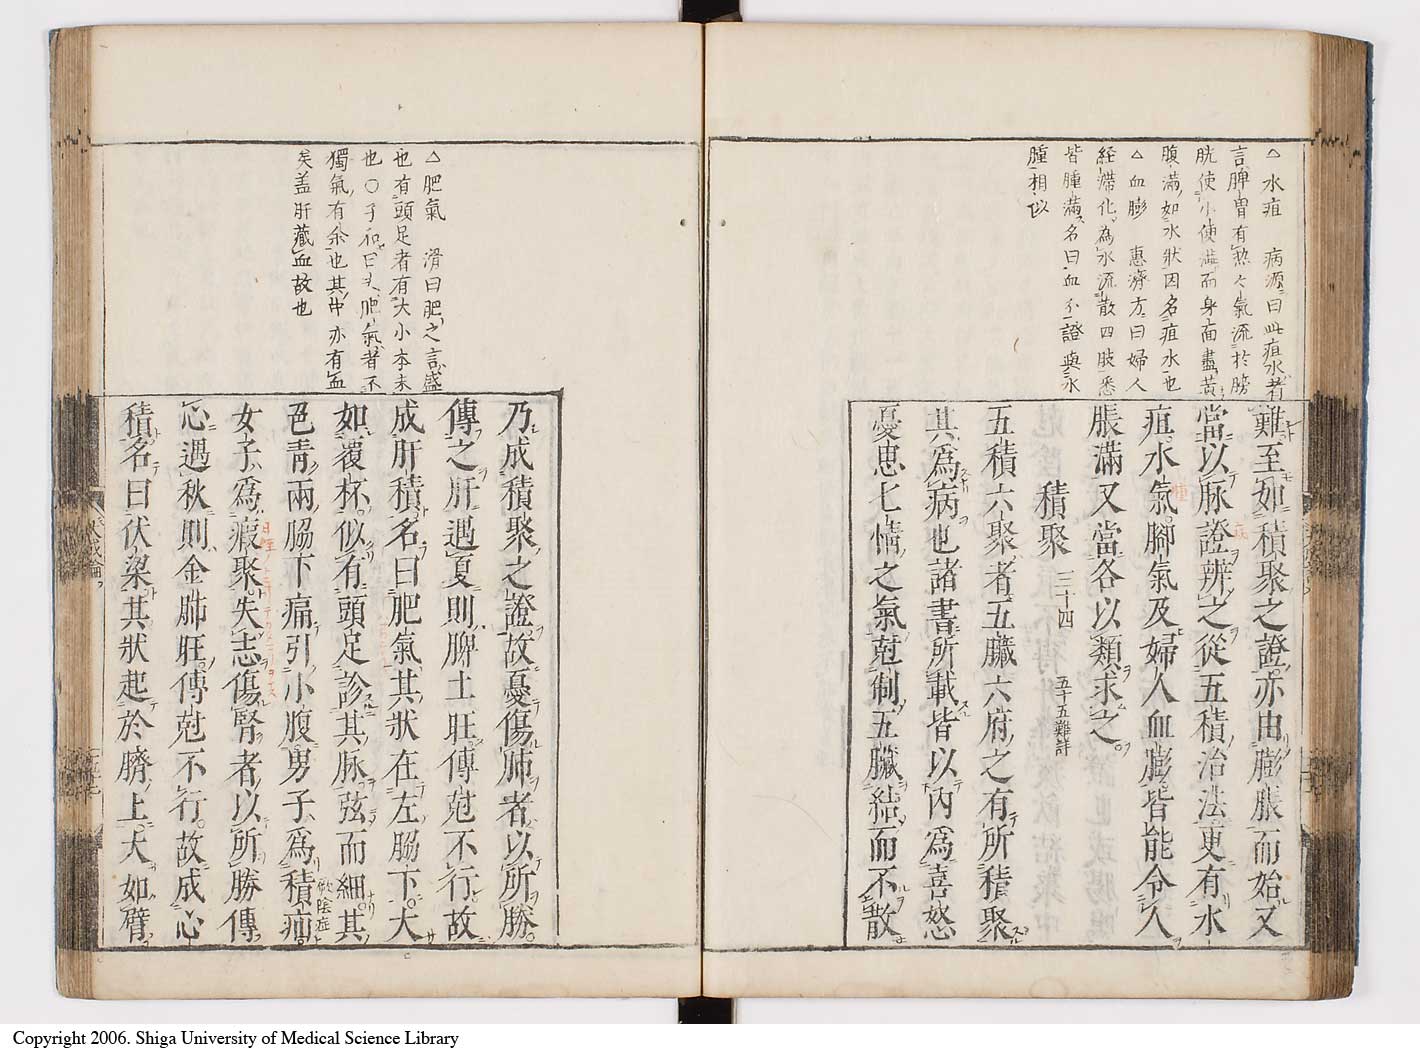 △水疽　病源曰此疽水者
言脾胃有熱々氣流於膀
胱使小便澁而身面盡黃
腹滿如水狀因名疽水也
△血膨　惠濟方曰婦人
経滯化為水流散四肢悉
皆腫滿名曰血分證與水
腫相似
難至如積聚之證亦由膨脹而始又
當以脉證辨之從五積治法更有水
疽水氣腳氣及婦人血膨皆能令人
脹滿又當各以類求之
積聚　三十四　五十五難詳
五積六聚者五臟六府之有所積聚
其為病也諸書所載皆以內為喜怒
憂思七情之氣尅制五臟結而不散
△肥氣　滑曰肥之言盛
也有頭足者有大小本末
也○子和曰夫肥氣者不
獨氣有余也其中亦有血
矣盖肝藏血故也
乃成積聚之證故憂傷肺者以所勝
傳之肝遇夏則脾土旺傳尅不行故
成肝積名曰肥氣其狀在左脇下大
如覆杯似有頭足診其脉弦而細其
色青兩脇下痛引小腹男子為積疝
女子為瘕聚失志傷腎者以所勝傳
心過秋則金肺旺傳尅不行故成心
積名曰伏梁其狀起於臍上大如臂
Copyright 2006. Shiga University of Medical Science Library